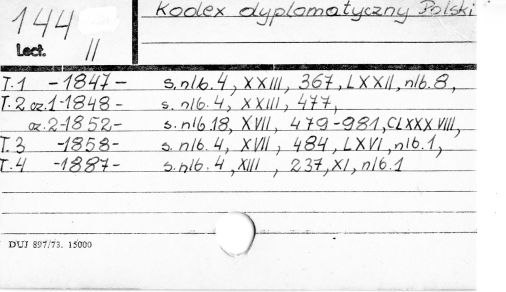 144
Lect. II
Kodex dyplomatyczny Polski
T.1 -1847- s.nlb.4, XXIII, 367, LXXII, nlb.8,
T.2 cz.1-1848- s.nlb.4, XXIII, 477,
cz.2-1852- s.nlb.18, XVII, 479-981, CLXXXVIII,
T.3 -1858- s.nlb.4, XVII, 484, LXVI, nlb.1,
T.4 -1887- s.nlb.4, XIII, 237, XI, nlb.1
DUJ 897/73. 15000